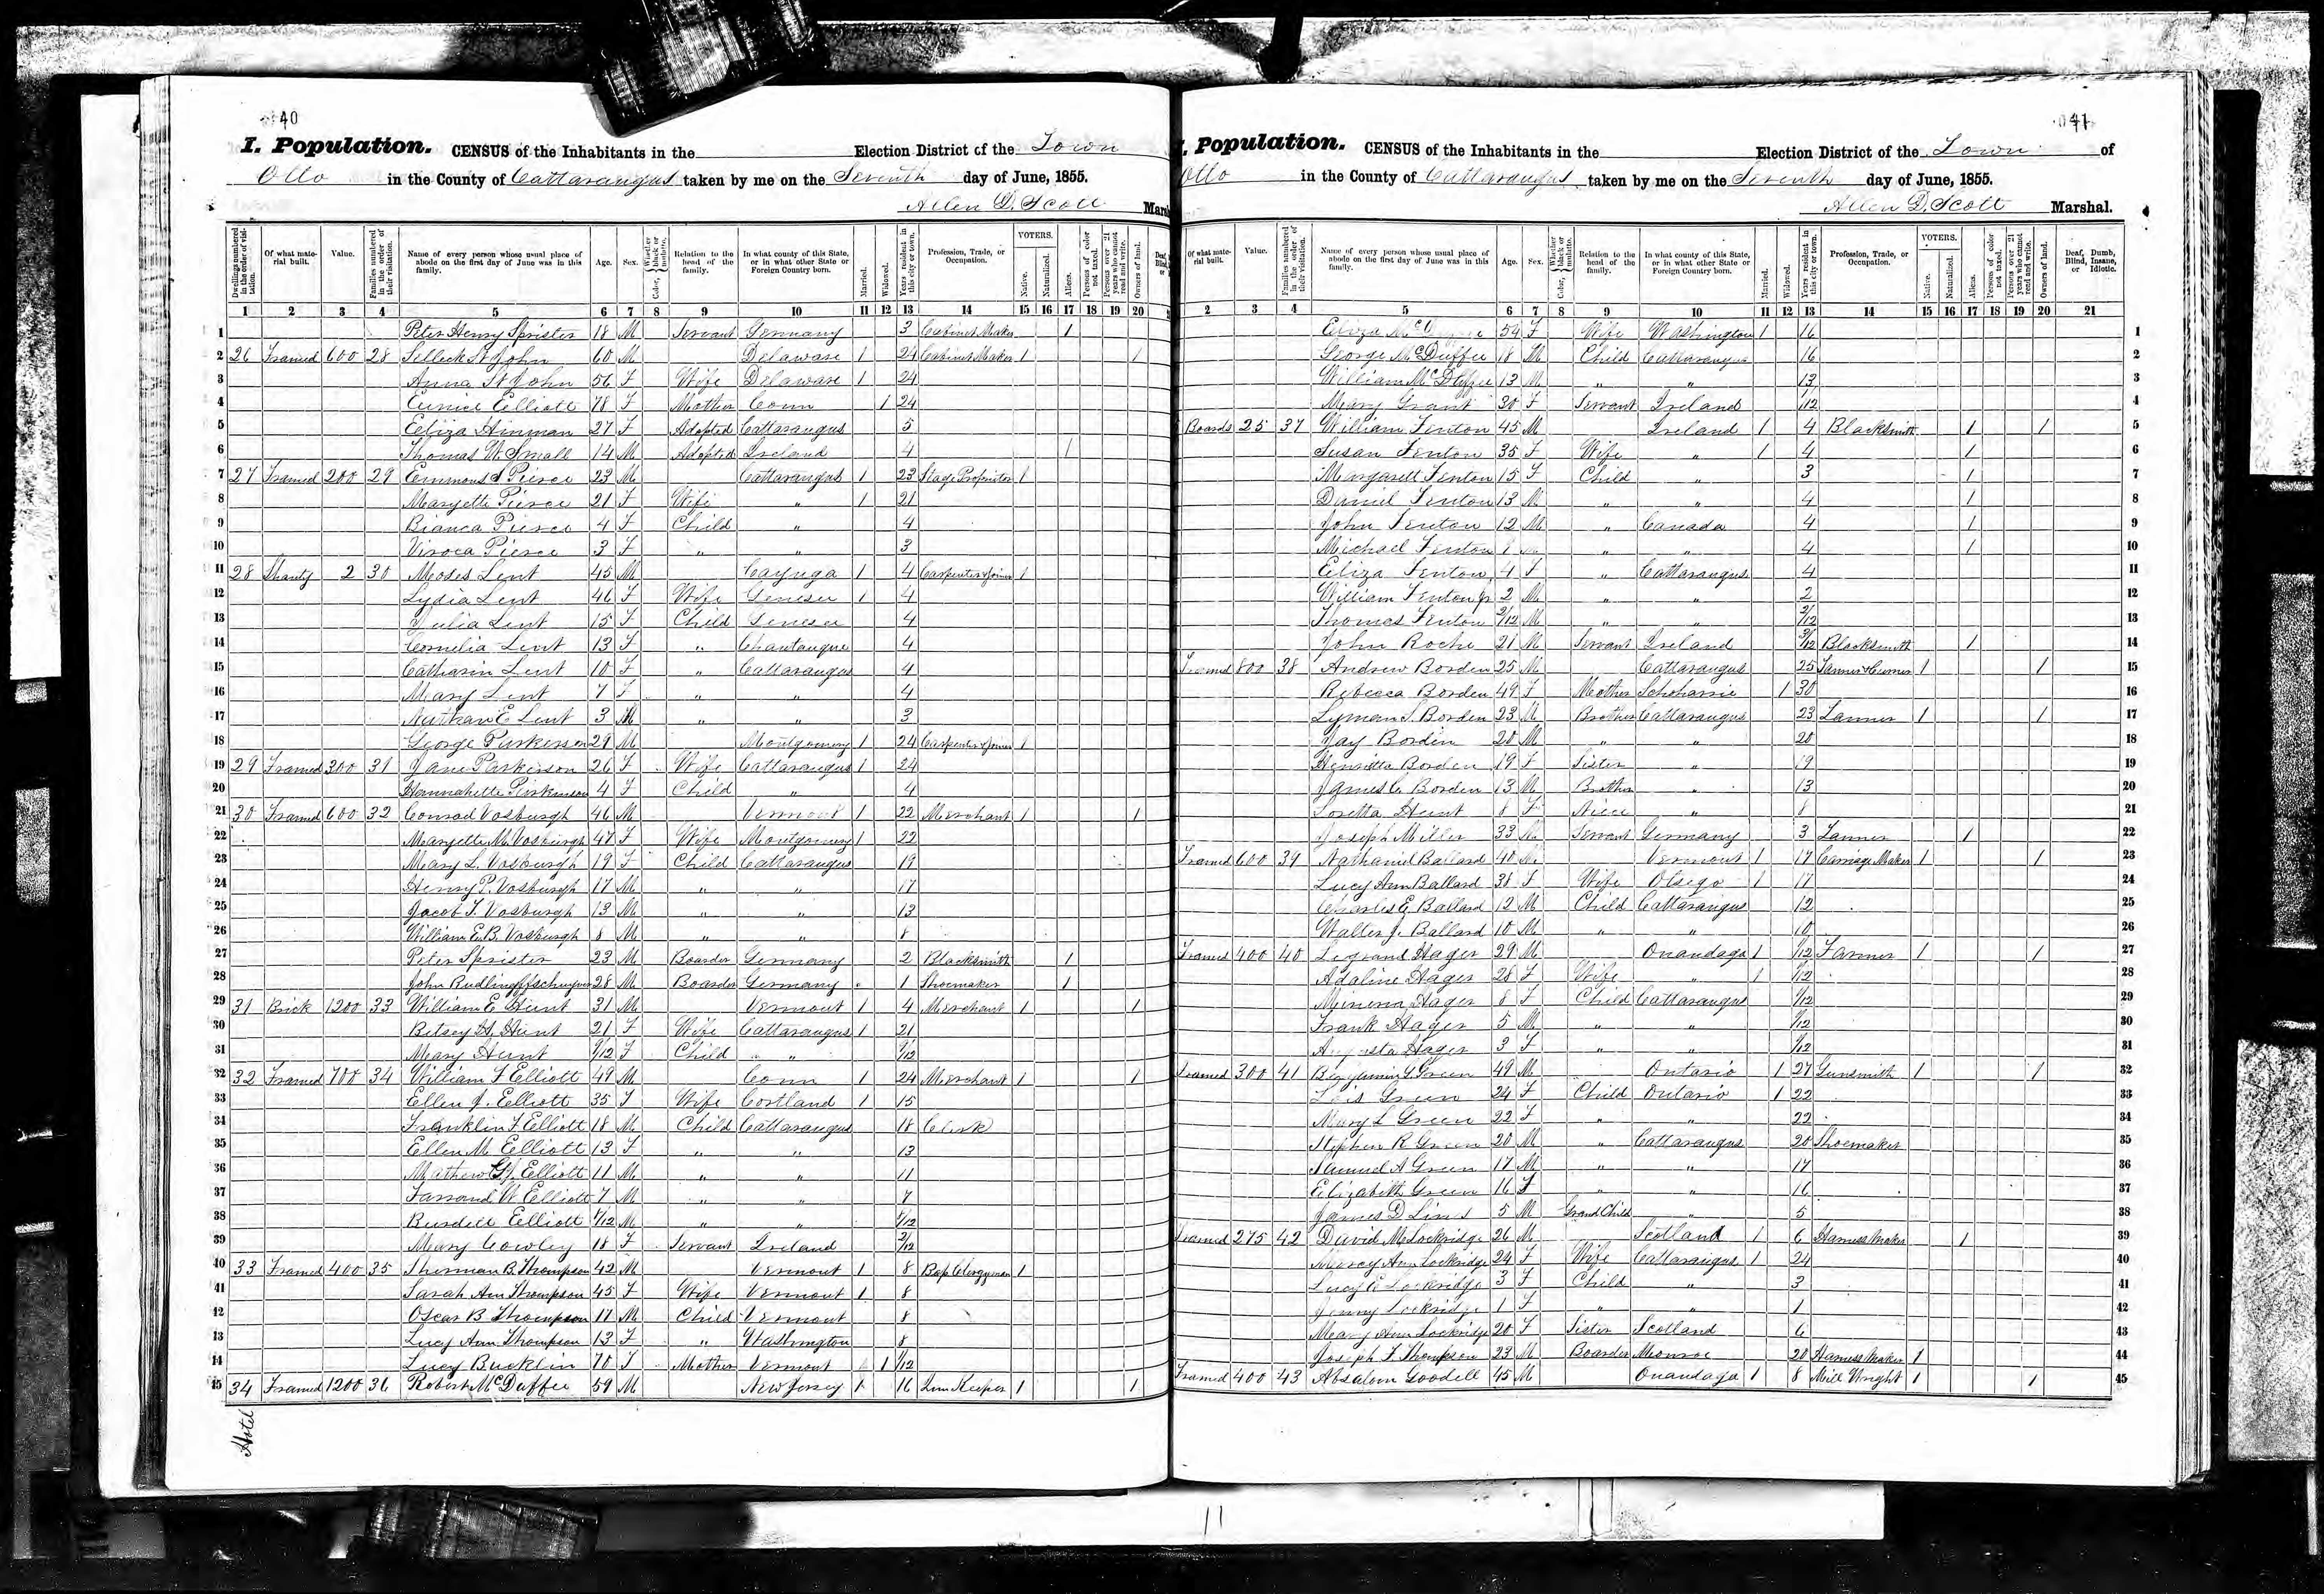 40
I. Population. CENSUS of the Inhabitants in the Election District of the Town
Otto in the County of Cattaraugus taken by me on the Seventh day of June, 1855.
Allen D. Scott Marsh
Dwellings numbered in the order of visitation. Of what material built. Value. Families numbered in the order of their visitation. Name of every person whose usual place of abode on the first day of June was in this family. Age. Sex. Color, Whether black or mulatto. Relation to the head of the family. In what county of this State, or in what other State or Foreign Country born. Married. Widowed. Years resident in this city or town. Profession, Trade, or Occupation. VOTERS. Native. Naturalized. Aliens. Persons of color not taxed. Persons over 21 years who cannot read and write. Owners of land.
1 2 3 4 5 6 7 8 9 10 11 12 13 14 15 16 17 18 19 20
1 Peter Henry Sprister 18 M Servant Germany 3 Cabinet Maker 1
2 26 Framed 600 28 Selleck St John 60 M Delaware 1 24 Cabinet Maker 1 1
3 Anna St John 56 F Wife Delaware 1 24
4 Eunice Elliott 78 F Mother Conn 1 24
5 Eliza Hinman 27 F Adopted Cattaraugus 5
6 Thomas W. Small 14 M Adopted Ireland 4 1
7 27 Framed 200 29 Emmons S Pierce 23 M Cattaraugus 1 23 Stage Proprietor 1
8 Maryette Pierce 21 F Wife " 1 21
9 Bianca Pierce 4 F Child " 4
10 Viroca Pierce 3 F " " 3
11 28 Shanty 2 30 Modes Lent 45 M Cayuga 1 4 Carpenter & Joiner 1
12 Lydia Lent 46 F Wife Genesee 1 4
13 Julia Lent 15 F Child Genesee 4
14 Cornelia Lent 13 F " Chautauque 4
15 Catharin Lent 10 F " Cattaraugus 4
16 Mary Lent 7 F " " 4
17 Nathan E Lent 3 M " " 3
18 George Parkerson 29 M Montgomery 1 24 Carpenter & Joiner 1
19 29 Framed 300 31 Jane Parkinson 26 F Wife Cattaraugus 1 24
20 Hannahette Parkinson 4 F Child " 4
21 30 Framed 600 32 Conrad Vosburgh 46 M Vermont 1 22 Merchant 1 1
22 Maryette M. Vosburgh 47 F Wife Montgomery 1 22
23 Mary L. Vosburgh 19 F Child Cattaraugus 19
24 Henry P. Vosburgh 17 M " " 17
25 Jacob T. Vosburgh 13 M " " 13
26 William E. B. Vosburgh 8 M " " 8
27 Peter Sprister 23 M Boarder Germany 2 Blacksmith 1
28 John 28 M Boarder Germany 1 Shoemaker 1
29 31 Brick 1200 33 William E Hunt 31 M Vermont 1 4 Merchant 1 1
30 Betsey H. Hunt 21 F Wife Cattaraugus 1 21
31 Mary Hunt 9/12 F Child " " 9/12
32 32 Framed 700 34 William F Elliott 49 M Conn 1 24 Merchant 1 1
33 Ellen J. Elliott 35 F Wife Cortland 1 15
34 Franklin F Elliott 18 M Child Cattaraugus 18 Clerk
35 Ellen M. Elliott 13 F " " 13
36 Mathew G. J. Elliott 11 M " " 11
37 Farrand W Elliott 7 M " " 7
38 Burdell Elliott 1/12 M " " 1/12
39 Mary Cowley 18 F Servant Ireland 2/12
40 33 Framed 400 35 Sherman B. Thompson 42 M Vermont 1 8 Bap Clergyman 1
41 Sarah Ann Thompson 45 F Wife Vermont 1 8
42 Oscar B Thompson 17 M Child Vermont 8
43 Lucy Ann Thompson 13 F " Washington 8
44 Lucy Bucklin 70 F Mother Vermont 1 1/12
45 34 Framed 1200 36 Robert McDuffee 59 M New Jersey 1 16 Inn Keeper 1 1
Hotel
41
I. Population. CENSUS of the Inhabitants in the Election District of the Town of
Otto in the County of Cattaraugus taken by me on the Seventh day of June, 1855.
Allen D. Scott Marshal.
Of what material built. Value. Families numbered in the order of their visitation. Name of every person whose usual place of abode on the first day of June was in this family. Age. Sex. Color, Whether black or mulatto. Relation to the head of the family. In what county of this State, or in what other State or Foreign Country born. Married. Widowed. Years resident in this city or town. Profession, Trade, or Occupation. VOTERS. Native. Naturalized. Aliens. Persons of color not taxed. Persons over 21 years who cannot read and write. Owners of land. Deaf, Dumb, Blind, Insane, or Idiotic.
2 3 4 5 6 7 8 9 10 11 12 13 14 15 16 17 18 19 20 21
Eliza 54 F Wife Washington 1 16 1
George McDuffee 18 M Child Cattaraugus 16 2
William McDuffee 13 M " " 13 3
Mary Grant 30 F Servant Ireland 1/12 4
Boards 25 37 William Fenton 45 M Ireland 1 4 Blacksmith 1 1 5
Susan Fenton 35 F Wife " 1 4 1 6
Margarett Fenton 15 F Child " 3 1 7
Daniel Fenton 13 M " " 4 1 8
John Fenton 12 M " Canada 4 1 9
Michael Fenton M " " 4 1 10
Eliza Fenton 4 F " Cattaraugus 4 11
William Fenton Jr 2 M " " 2 12
Thomas Fenton 2/12 M " " 2/12 13
John Roche 21 M Servant Ireland 3/12 Blacksmith 1 14
Framed 800 38 Andrew Borden 25 M Cattaraugus 25 Tanner & Currier 1 1 15
Rebecca Borden 49 F Mother Schoharie 1 30 16
Lyman S. Borden 23 M Brother Cattaraugus 23 Tanner 1 1 17
Jay Borden 20 M " " 20 18
Henrietta Borden 19 F Sister " 19 19
James C. Borden 13 M Brother " 13 20
Loretta Hunt 8 F Niece " 8 21
Joseph Miller 33 M Servant Germany 3 Tanner 1 22
Framed 600 39 Nathaniel Ballard 40 M Vermont 1 17 Carriage Maker 1 1 23
Lucy Ann Ballard 38 F Wife Otsego 1 17 24
Charles E. Ballard 12 M Child Cattaraugus 12 25
Walter J. Ballard 10 M " " 10 26
Framed 400 40 Legrand Hager 29 M Onandaga 1 1/12 Farmer 1 1 27
Adaline Hager 28 F Wife " 1 1/12 28
Minerva Hager 8 F Child Cattaraugus 1/12 29
Frank Hager 5 M " " 1/12 30
Augusta Hager 3 F " " 1/12 31
Framed 300 41 Benjamin L Green 49 M Ontario 1 27 Gunsmith 1 1 32
Lois Green 24 F Child Ontario 1 22 33
Mary L Green 22 F " " 22 34
Stephen R Green 20 M " Cattaraugus 20 Shoemaker 35
Samuel A Green 17 M " " 17 36
Elizabeth Green 16 F " " 16 37
James D 5 M Grand Child " 5 38
Framed 275 42 David McLockridge 26 M Scotland 1 6 Harness Maker 1 39
Marcy Ann Lockridge 24 F Wife Cattaraugus 1 24 40
Lucy E Lockridge 3 F Child " 3 41
Jenny Lockridge 1 F " " 1 42
Mary Ann Lockridge 20 F Sister Scotland 6 43
Joseph F Thompson 23 M Boarder Monroe 20 Harness Maker 1 44
Framed 400 43 Absalom Goodell 45 M Onandaga 1 8 Mill Wright 1 1 45